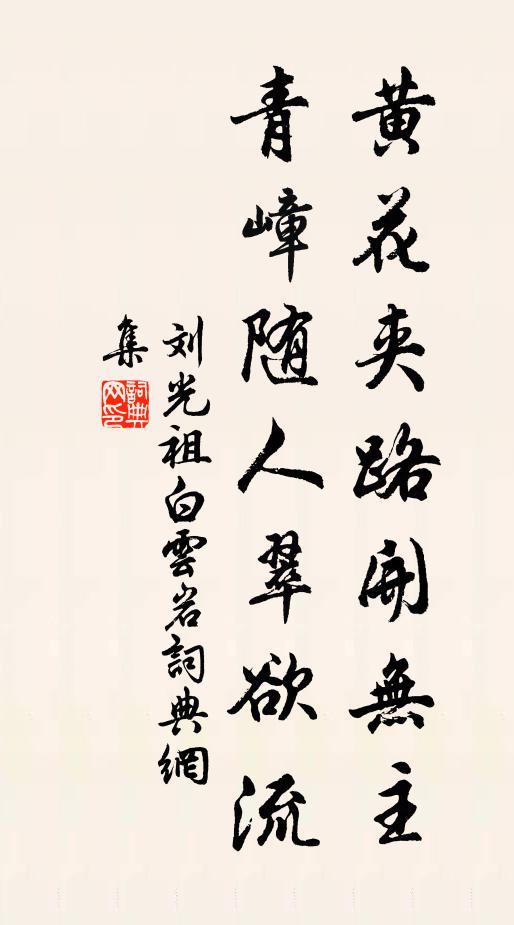 黄花夹路開無主
青嶂随人翠欲流
刘光祖白雲岩詞典網
集
詞典网印